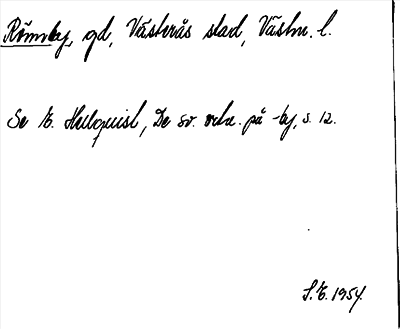 Römsby, gd, Västerås stad, Västm. l.
Se E. Hellquist, De sv. ortn. på -by, s. 12.
S.E. 1954.